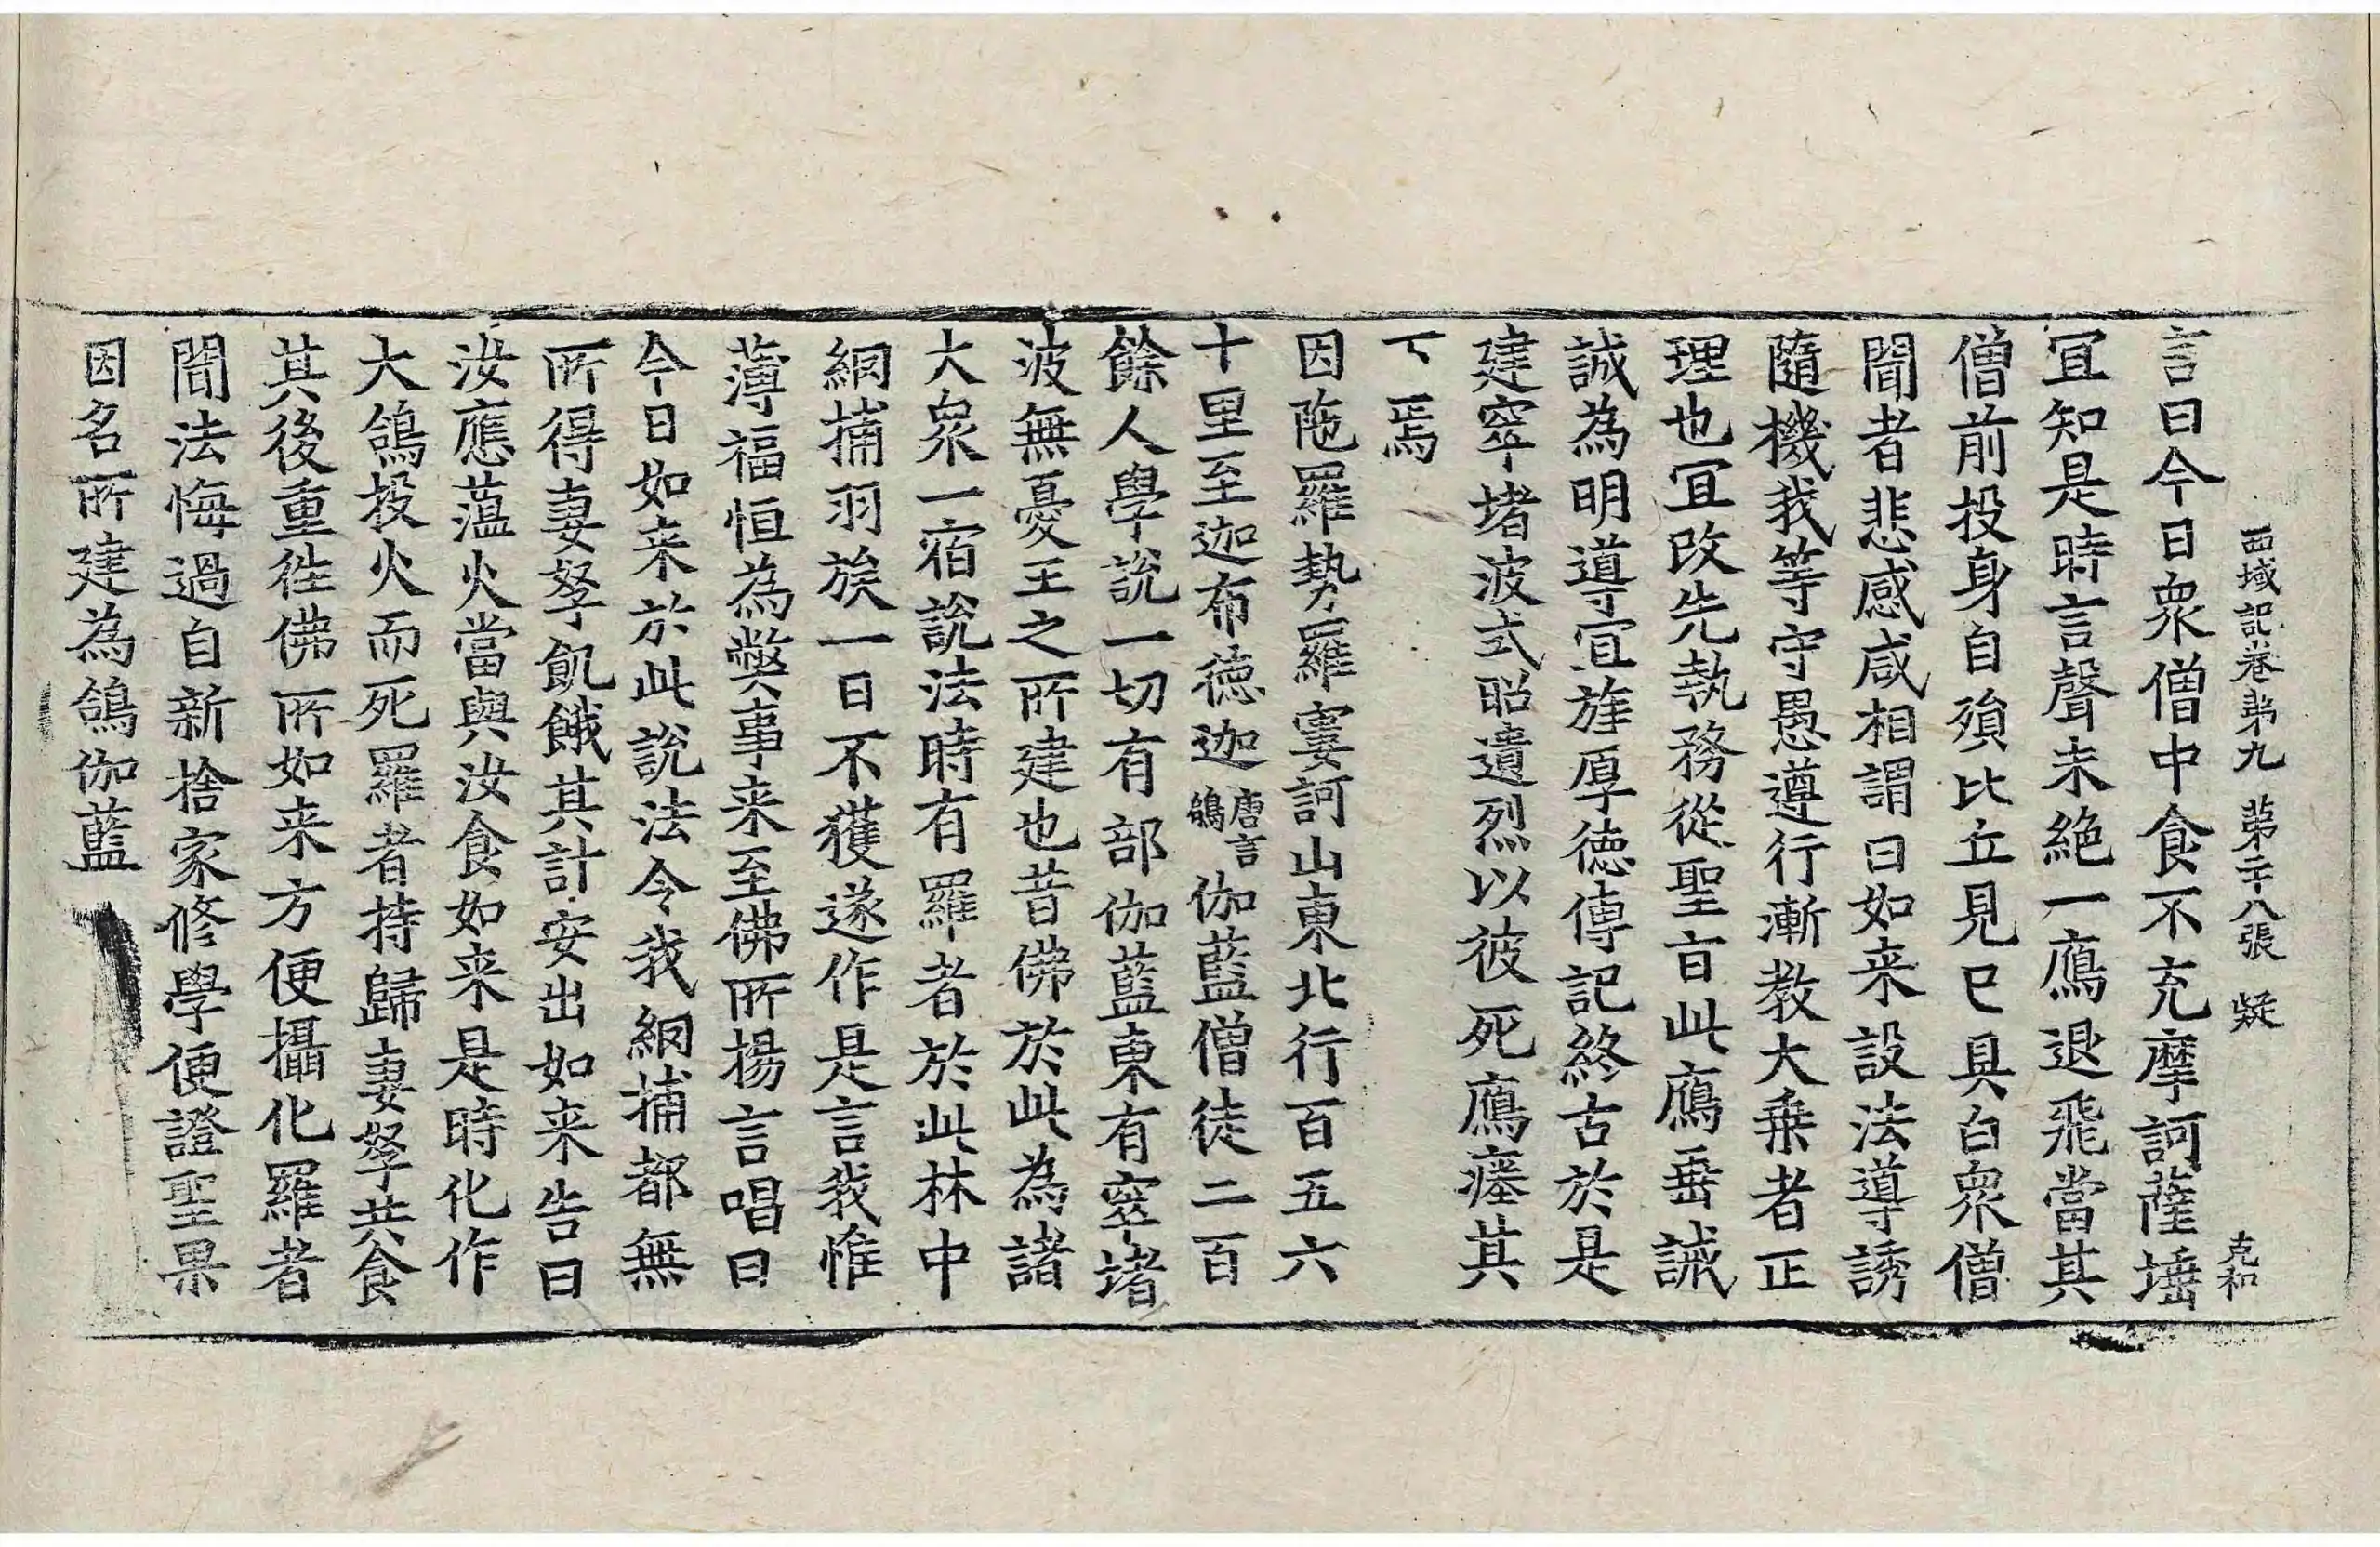 西域記卷第九 第二十八張 疑 克和
言曰今日衆僧中食不充摩訶薩埵
冝知是時言聲未絶一鴈退飛當其
僧前投身自殞比丘見已具白衆僧
聞者悲感咸相謂曰如来設法導誘
隨機我等守愚遵行漸教大乗者正
理也冝改先執務從聖旨此鴈垂誡
誠為明導宜旌厚徳傳記終古於是
建窣堵波式昭遺烈以彼死鴈瘞其
下焉
因陁羅勢羅窶訶山東北行百五六
十里至迦布徳迦唐言鴿伽藍僧徒二百
餘人學說一切有部伽藍東有窣堵
波無憂王之所建也昔佛於此為諸
大衆一宿說法時有羅者於此林中
網捕羽族一日不獲遂作是言我惟
薄福恒為弊事来至佛所揚言唱曰
今日如来於此說法令我網捕都無
所得妻孥飢餓其計安出如来告曰
汝應藴火當與汝食如来是時化作
大鴿投火而死羅者持歸妻孥共食
其後重徃佛所如来方便攝化羅者
聞法悔過自新捨家修學便證聖果
因名所建為鴿伽藍